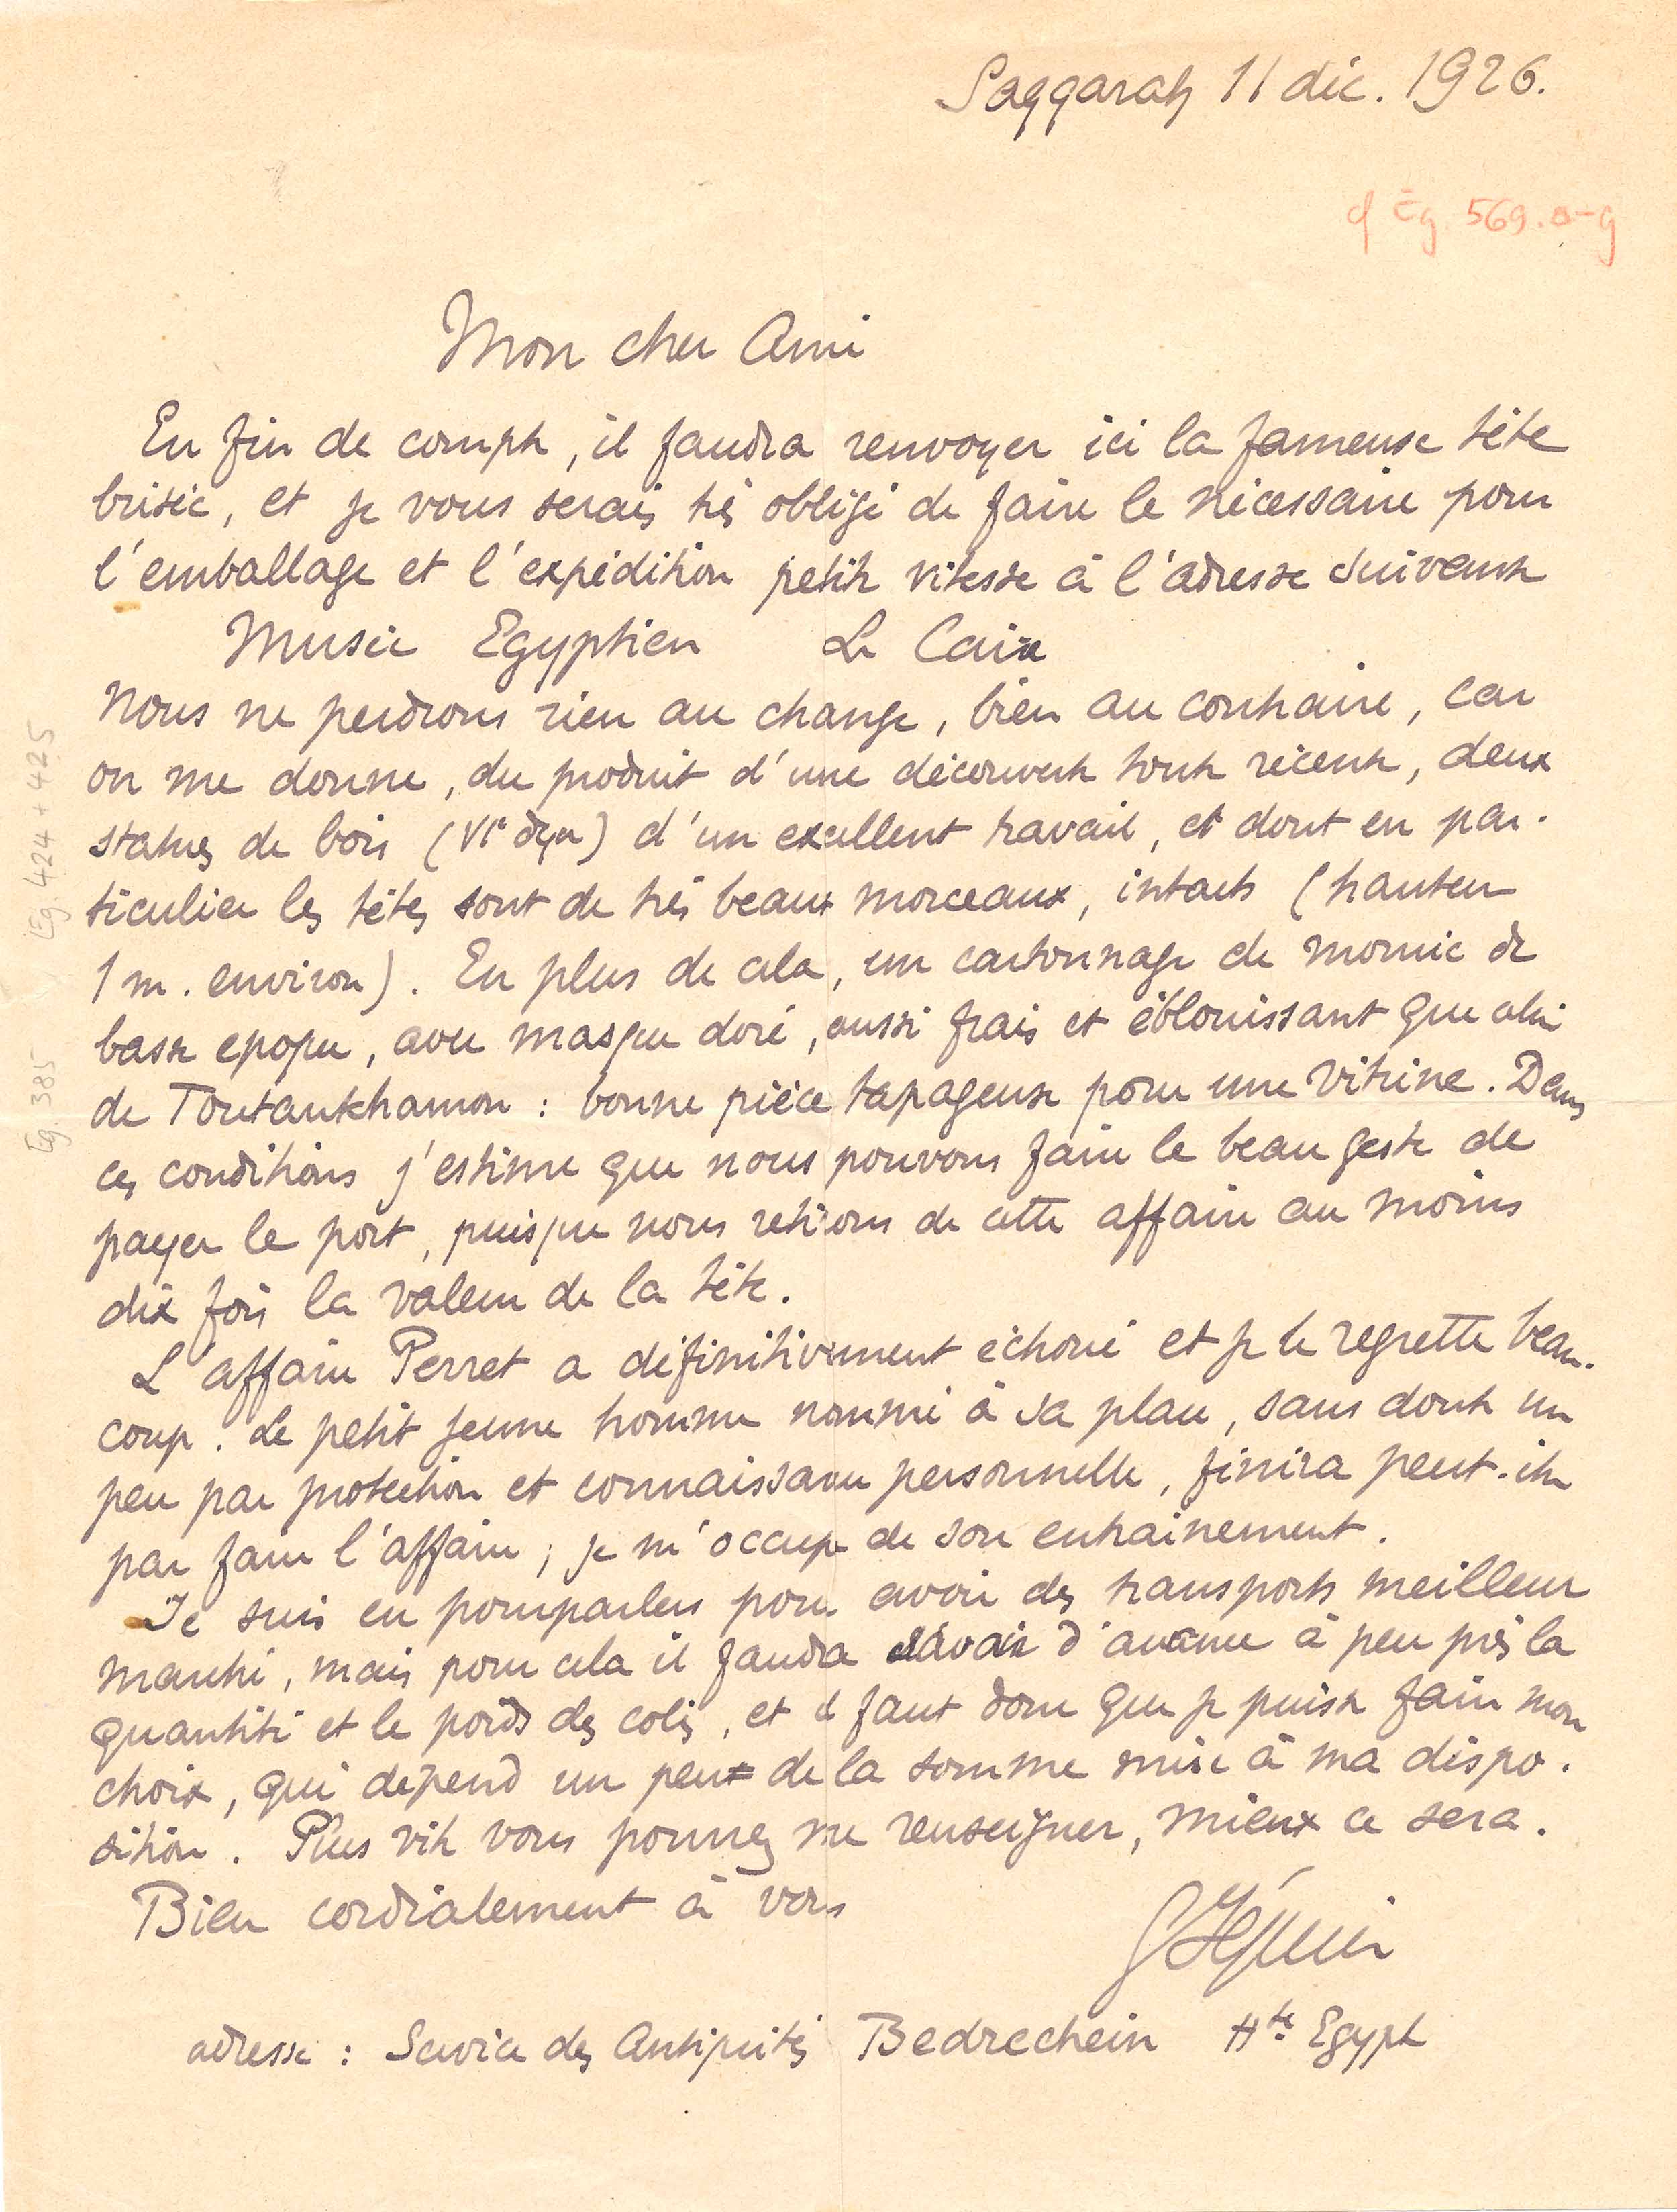 Saqqarah 11 déc. 1926.
cf Eg. 569.a-g
Mon cher Ami
En fin de compte, il faudra renvoyer ici la fameuse tête
brisée, et je vous serais très obligé de faire le nécessaire pour
l'emballage et l'expédition petite vitesse à l'adresse suivante
Musée Egyptien Le Caire
Nous ne perdrons rien au change, bien au contraire, car
on me donne, du produit d'une découverte toute récente, deux
statues de bois (VIe dyn) d'un excellent travail, et dont en par-
ticulier les têtes sont de très beaux morceaux, intacts (hauteur
1 m. environ). En plus de cela, un cartonnage de momie de
basse epoque, avec masque doré, aussi frais et éblouissant que celui
de Toutankhamon : bonne pièce tapageuse pour une vitrine. Dans
ces conditions j'estime que nous pouvons faire le beau geste de
payer le port, puisque nous retirons de cette affaire au moins
dix fois la valeur de la tête.
L'affaire Perret a définitivement échoué et je le regrette beau-
coup. Le petit jeune homme nommé à sa place, sans doute un
peu par protection et connaissance personnelle, finira peut-être
par faire l'affaire ; je m'occupe de son entrainement.
Je suis en pourparlers pour avoir des transports meilleur
marché, mais pour cela il faudra savoir d'avance à peu près la
quantité et le poids des colis, et il faut donc que je puisse faire mon
choix, qui dépend un peu de la somme mise à ma dispo-
sition. Plus vite vous pourrez me renseigner, mieux ce sera.
Bien cordialement à vous
G Jéquier
adresse : Service des Antiquités Bedrechein Hte Egypte
Eg. 424 + 425
Eg. 385